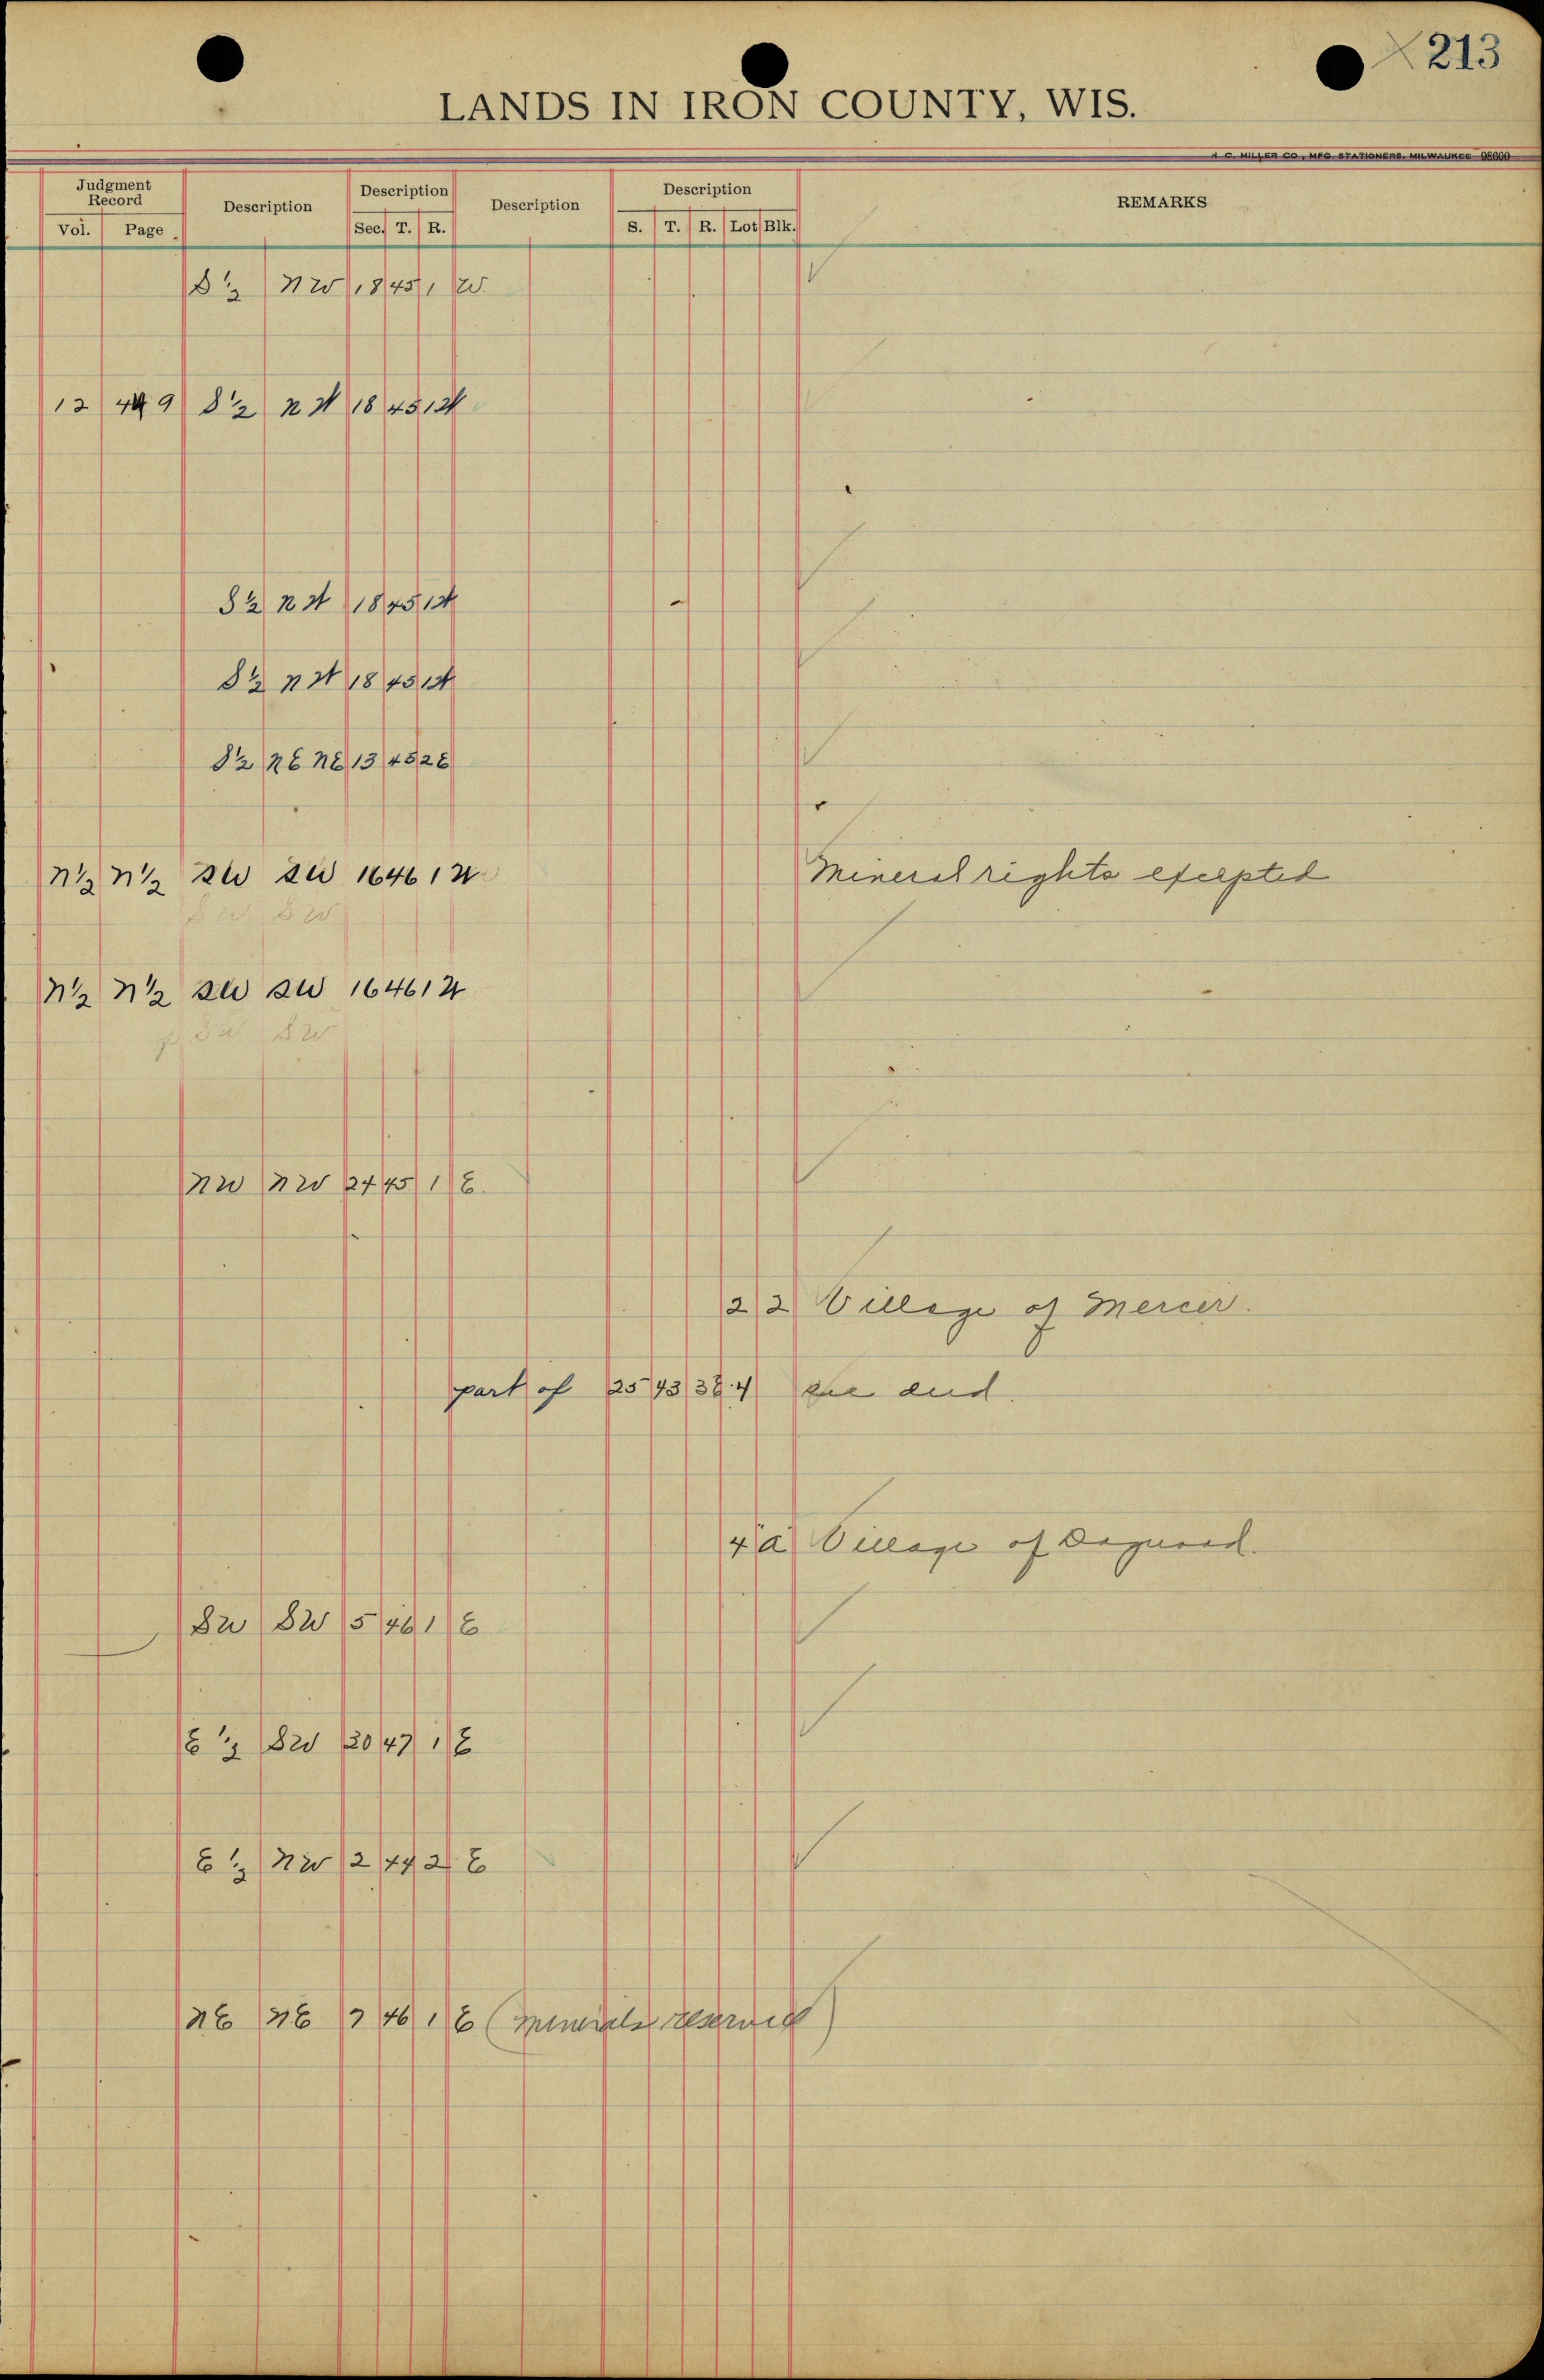 213
LANDS IN IRON COUNTY, WIS.
H. C. MILLER CO., MFG. STATIONERS, MILWAUKEE 98600
Judgment Record Description Description Description Description REMARKS
Vol. Page Sec. T. R. S. T. R. Lot Blk.
S½ NW 18 45 1 W.
12 449 S½ NW 18 45 1W
S½ NW 18 45 1W
S½ NW 18 45 1W
S½ NE NE 13 45 2E
N½ N½ SW SW 16 46 1 W Mineral rights excepted
SW SW
N½ N½ SW SW 16 46 1 W
SW SW
NW NW 24 45 1 E.
2 2 Village of Mercer.
part of 25 43 3E 4 see deed.
4 "A" Village of
SW SW 5 46 1 E
E ½ SW 30 47 1 E
E ½ NW 2 44 2 E
NE NE 7 46 1 E (minerals reserved)